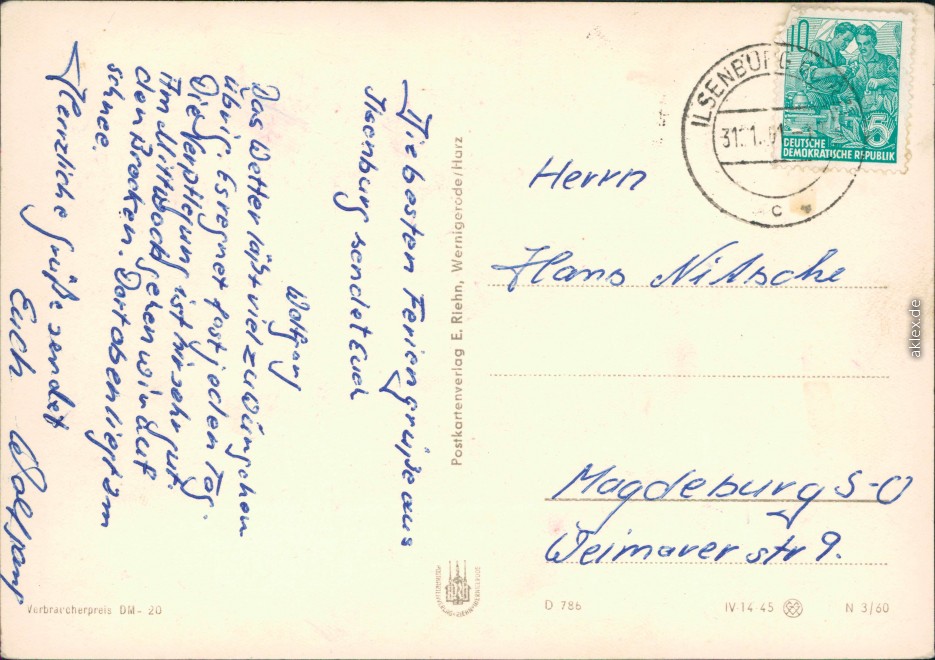 Die besten Feriengrüße aus
Ilsenburg sendet Euch
Wolfgang
Das Wetter läßt viel zu wünschen
übrig. Es regnet fast jeden Tag.
Die Verpflegung ist hir sehr gut.
Am Mittwoch gehen wir auf
den Brocken. Dort oben liegt 3m
schnee.
Herzliche Grüße sendet
Euch Wolfgang
Verbraucherpreis DM -20
Postkartenverlag E. Riehn, Wernigerode/Harz
10
5
DEUTSCHE
DEMOKRATISCHE REPUBLIK
ILSENBURG
c
Herrn
Hans Nitsche
Magdeburg S-O
Weimarer str 9.
D 786
IV-14-45
N 3/60
aklex.de